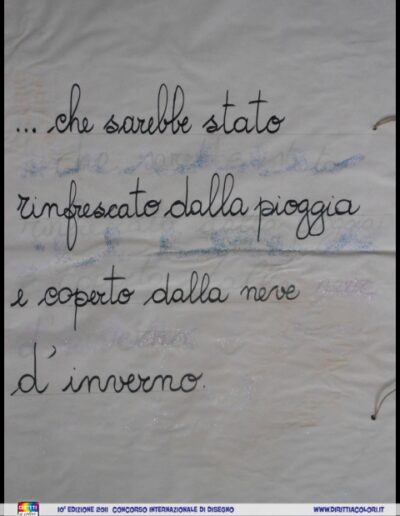 ... che sarebbe stato
rinfrescato dalla pioggia
e coperto dalla neve
d'inverno.
10° EDIZIONE 2011 CONCORSO INTERNAZIONALE DI DISEGNO WWW.DIRITTIACOLORI.IT